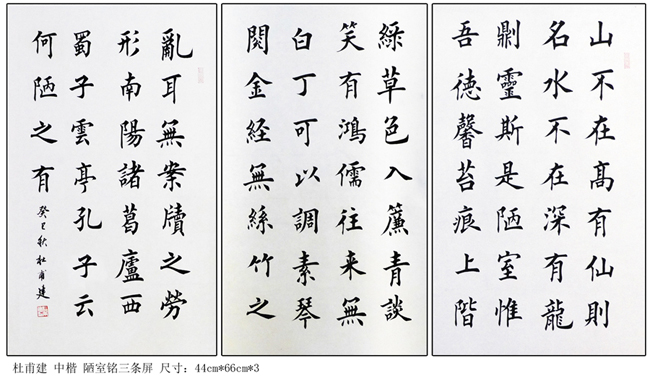 山不在高有仙則
名水不在深有龍
則靈斯是陋室惟
吾德馨苔痕上階
綠草色入簾青談
笑有鴻儒往来無
白丁可以調素琴
閱金経無絲竹之
亂耳無案牘之勞
形南陽諸葛廬西
蜀子雲亭孔子云
何陋之有
癸巳秋杜甫建
杜甫建 中楷 陋室铭三条屏 尺寸：44cm*66cm*3